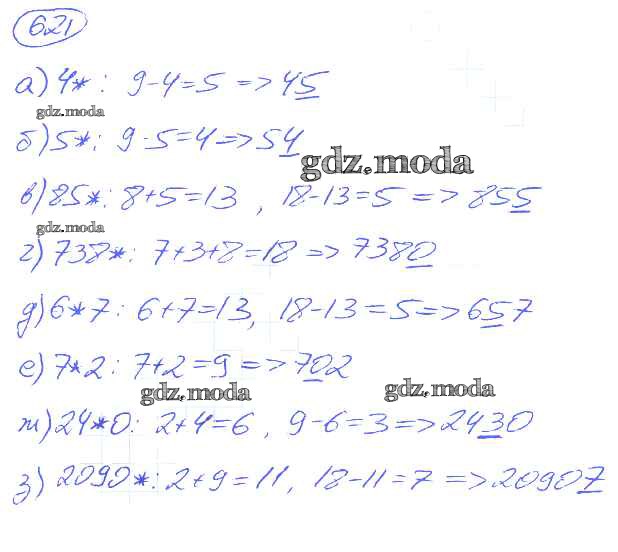 621
а) 4*: 9-4=5 => 45
gdz.moda
б) 5*: 9-5=4 => 54
gdz.moda
в) 85*: 8+5=13, 18-13=5 => 855
gdz.moda
г) 738*: 7+3+8=18 => 7380
д) 6*7: 6+7=13, 18-13=5 => 657
е) 7*2: 7+2=9 => 702
gdz.moda
gdz.moda
ж) 24*0: 2+4=6, 9-6=3 => 2430
з) 2090*: 2+9=11, 18-11=7 => 20907